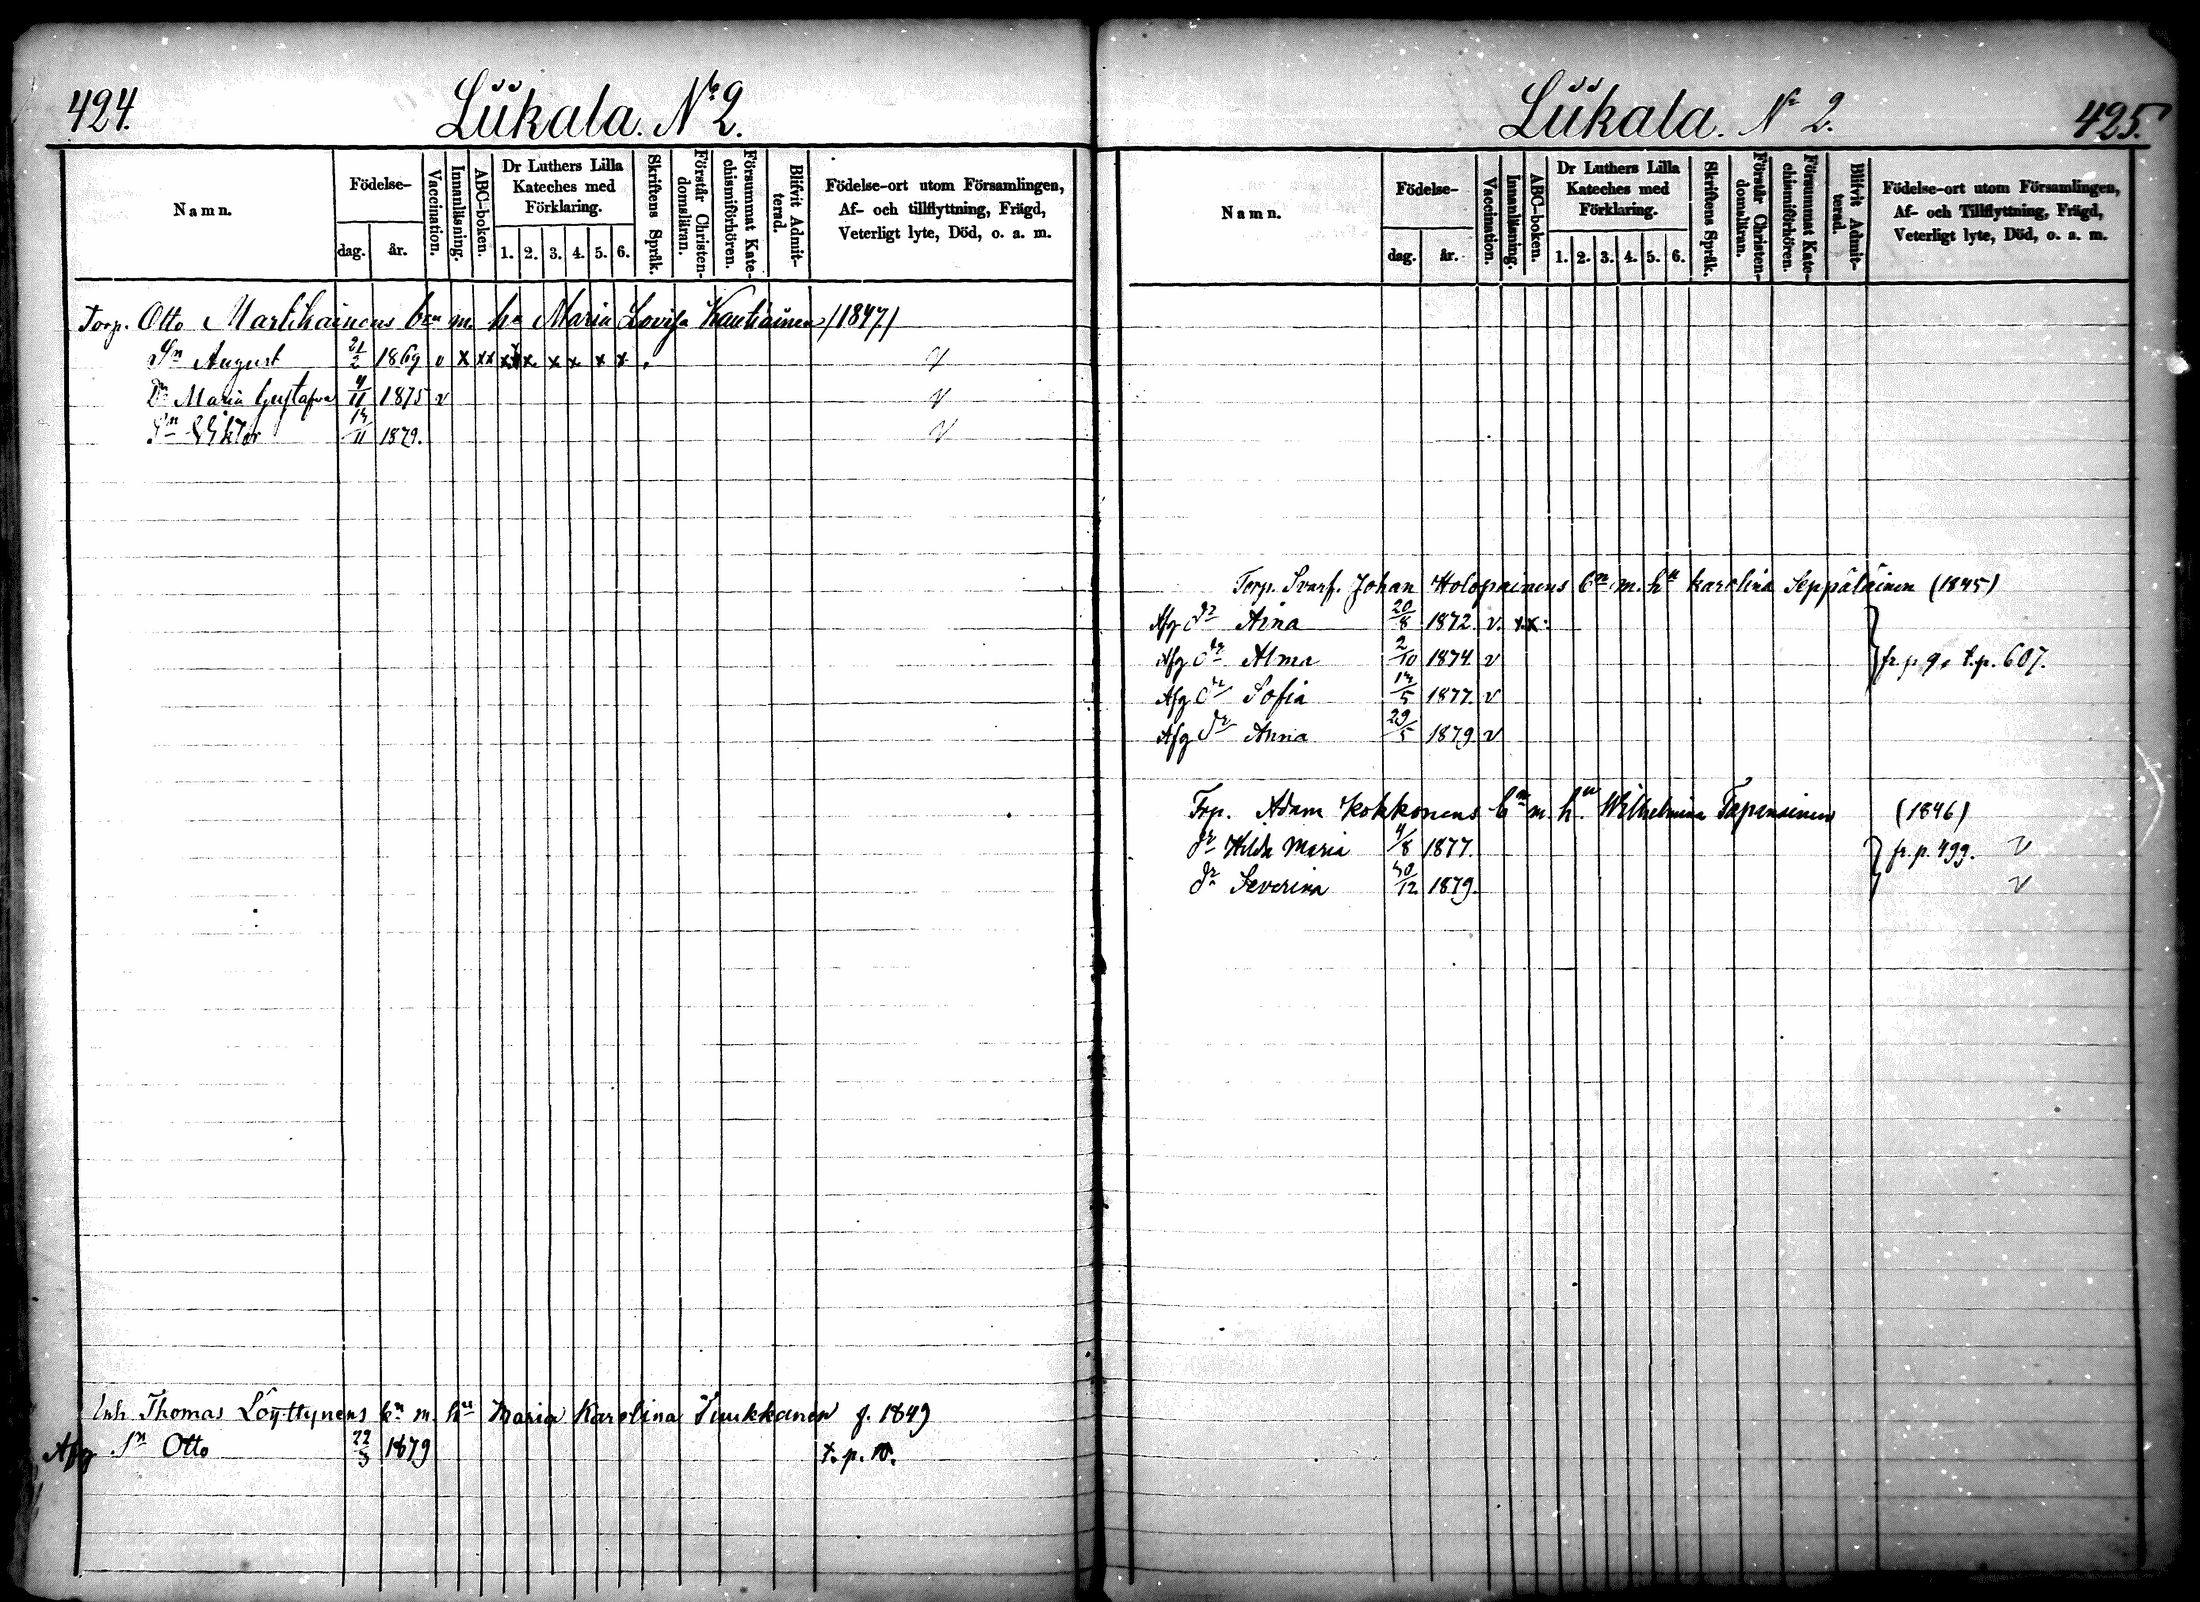 424.
Liikala. No 2.
Namn.
Födelse-
dag.
år.
Vaccination.
Innanläsning.
ABC-boken.
Dr Luthers Lilla
Kateches med
Förklaring.
1. 2. 3. 4. 5. 6.
Skriftens Språk.
Förstår Christen-
domsläran.
Försummat Kate-
chismiförhören.
Blifvit Admit-
terad.
Födelse-ort utom Församlingen,
Af- och tillflyttning, Frägd,
Veterligt lyte, Död, o. a. m.
Torp. Otto Martikainens bn m. hu Maria Lovisa Kautiainen (1847)
Sn August 21/2 1869 v x xx x x x x x x v
Dr Maria Gustafva 4/11 1875 v v
Sn Viktor 13/11 1879. v
Inh Thomas Löyttynens bn m hu Maria Karolina Tiukkanen f. 1849
Afg Sn Otto 22/3 1879 t. p. 10.
425.
Liikala. No 2.
Namn.
Födelse-
dag.
år.
Vaccination.
Innanläsning.
ABC-boken.
Dr Luthers Lilla
Kateches med
Förklaring.
1. 2. 3. 4. 5. 6.
Skriftens Språk.
Förstår Christen-
domsläran.
Försummat Kate-
chismiförhören.
Blifvit Admit-
terad.
Födelse-ort utom Församlingen,
Af- och Tillflyttning, Frägd,
Veterligt lyte, Död, o. a. m.
Torp. Svarf. Johan Holopainens bn m. hu Karolina Seppäläinen (1845)
Afg dr Aina 20/8 1872. v. x x
Afg dr Alma 2/10 1874. v fr. p 9, t. p. 607.
Afg dr Sofia 13/5 1877. v
Afg dr Anna 29/5 1879 v
Trp. Adam Kokkonens bn m hu Wilhelmina Tapanainen (1846)
dr Hilda Maria 4/8 1877. fr. p. 499. v
dr Severina 30/12 1879. v